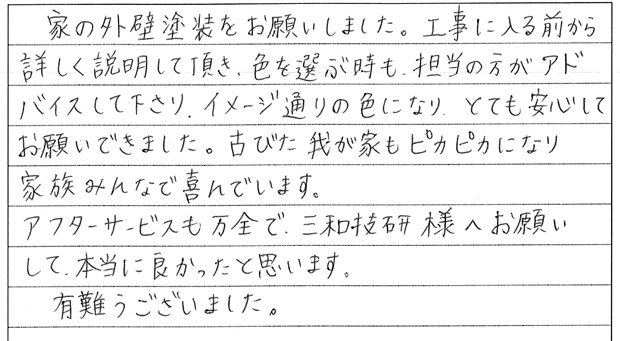 家の外壁塗装をお願いしました。工事に入る前から
詳しく説明して頂き、色を選ぶ時も、担当の方がアド
バイスして下さり、イメージ通りの色になり、とても安心して
お願いできました。古びた我が家もピカピカになり
家族みんなで喜んでいます。
アフターサービスも万全で、三和技研様へお願い
して、本当に良かったと思います。
有難うございました。